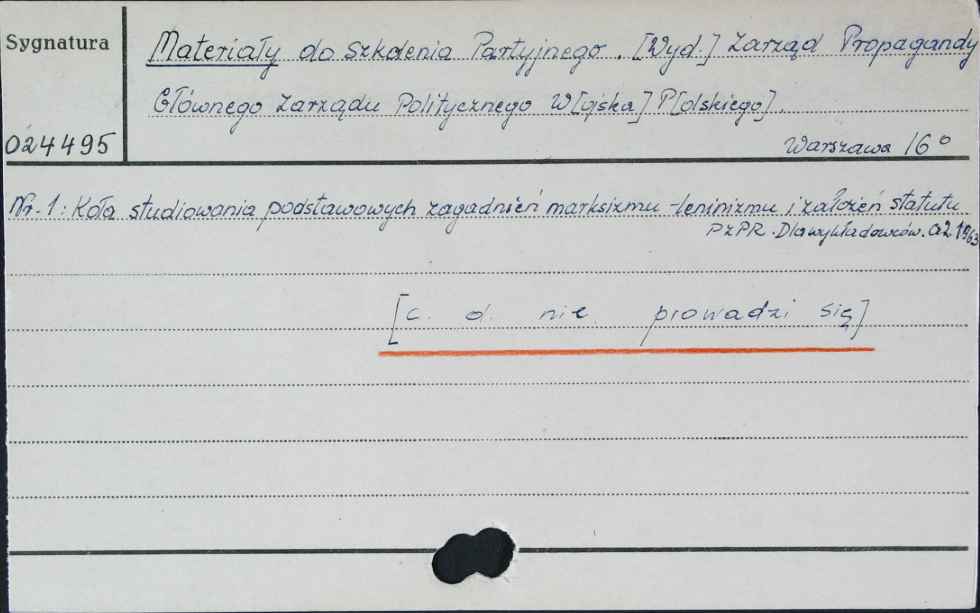 Sygnatura
Materiały do Szkolenia Partyjnego. [Wyd.] Zarząd Propagandy
Głównego Zarządu Politycznego W[ojska] P[olskiego].
024495
Warszawa 16°
Nr. 1: Koła studiowania podstawowych zagadnień marksizmu-leninizmu i założeń statutu
PZPR. Dla wykładowców. 1963
[c. d. nie prowadzi się]